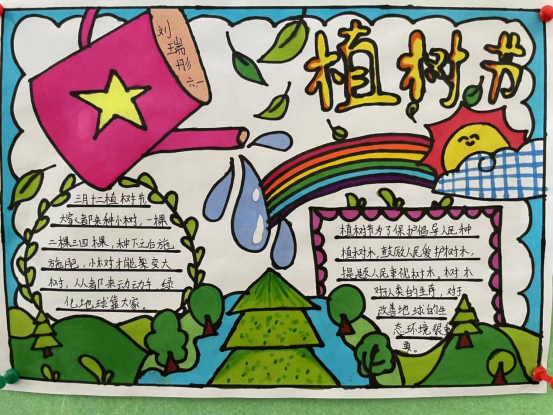 植树节
刘瑞彤
六一
三月十二植树节
大家都来种小树，一棵
二棵三四棵，种下之后施
施肥，小树才能变大
树，人人都来动动手，绿
化地球靠大家。
植树节为了保护倡导人民种
植树木，鼓励人民爱护树木，
提题人民重视树木，树木
对人类的生存，对于
改善地球的生
态环境很重
要。